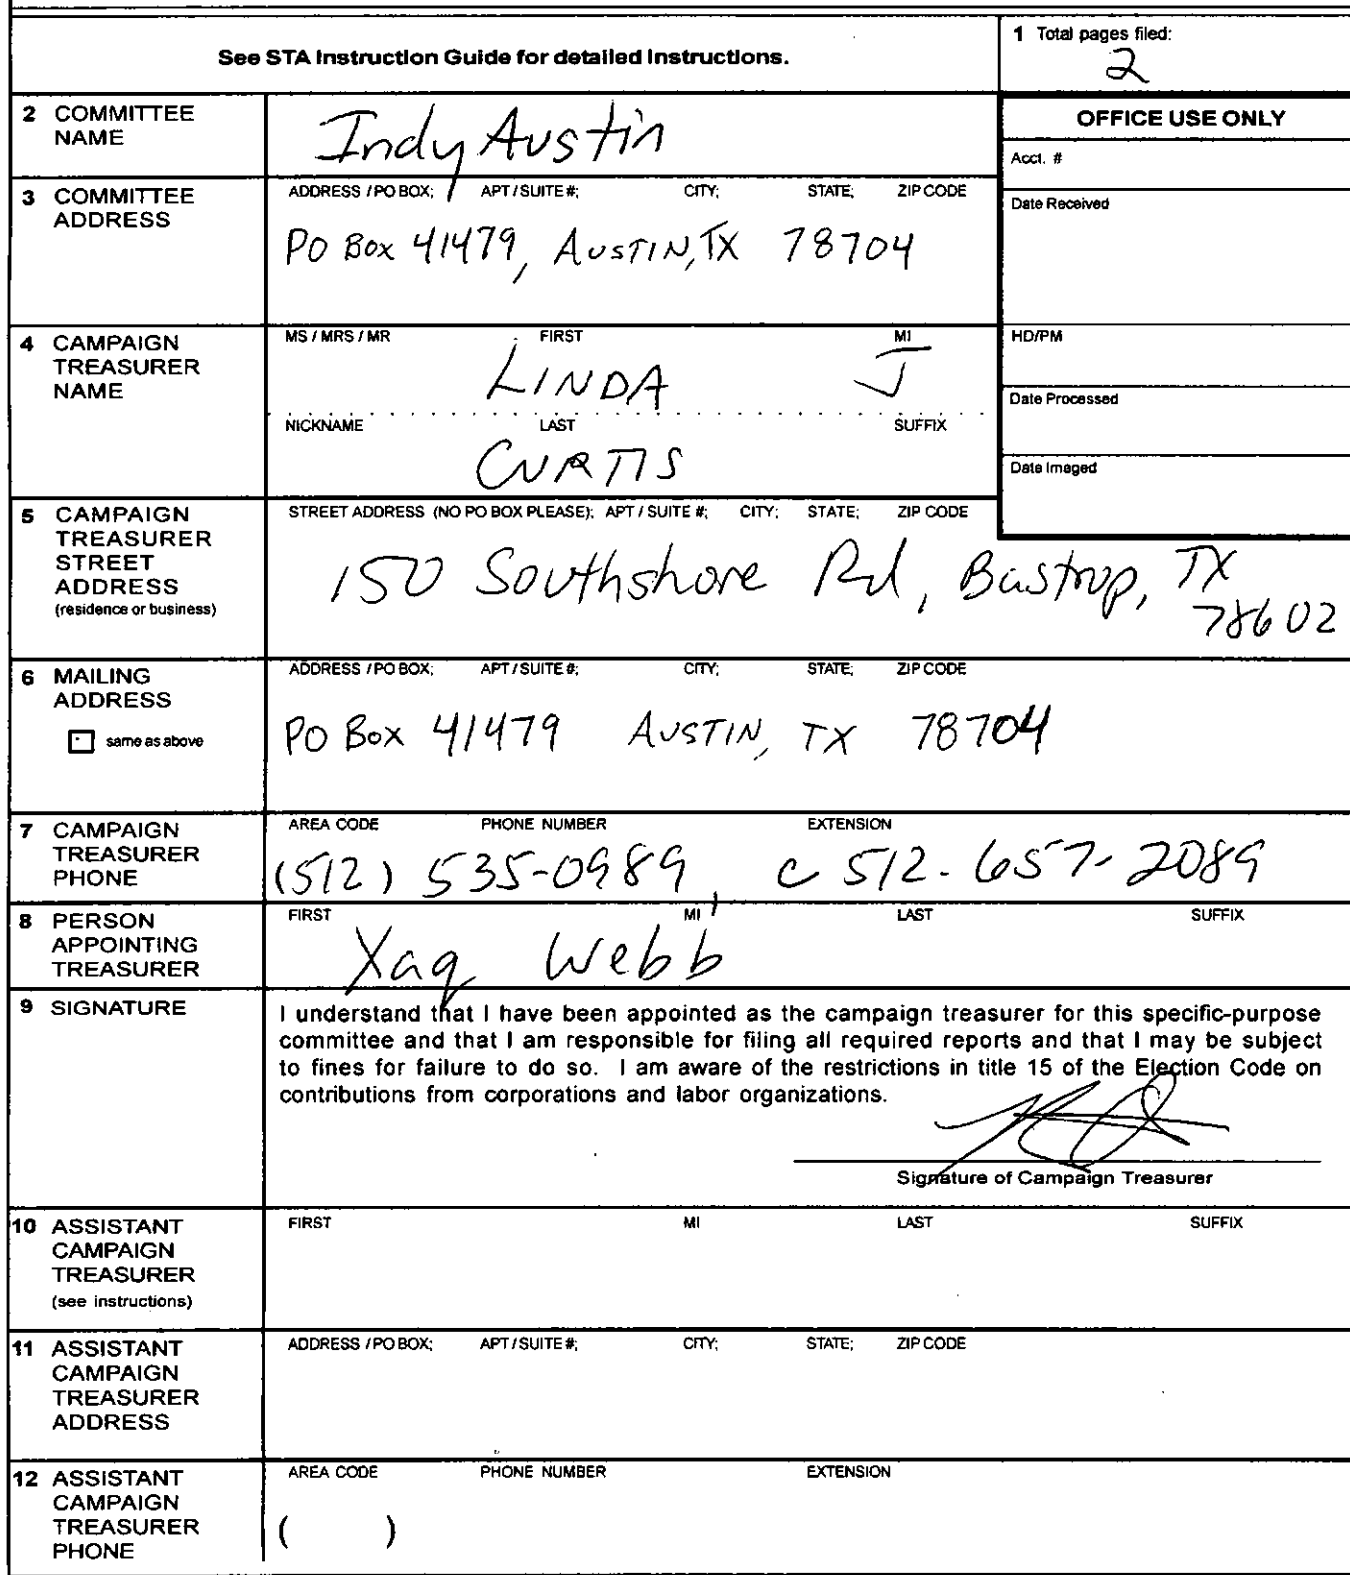 See STA Instruction Guide for detailed instructions.
1 Total pages filed:
2
2 COMMITTEE NAME
Indy Austin
OFFICE USE ONLY
Acct. #
Date Received
HD/PM
Date Processed
Date Imaged
3 COMMITTEE ADDRESS
ADDRESS / PO BOX; APT / SUITE #; CITY; STATE; ZIP CODE
PO Box 41479, AUSTIN, TX 78704
4 CAMPAIGN TREASURER NAME
MS / MRS / MR FIRST MI
LINDA J
NICKNAME LAST SUFFIX
CURTIS
5 CAMPAIGN TREASURER STREET ADDRESS
(residence or business)
STREET ADDRESS (NO PO BOX PLEASE); APT / SUITE #; CITY; STATE; ZIP CODE
150 Southshore Rd, Bastrop, TX
78602
6 MAILING ADDRESS
same as above
ADDRESS / PO BOX; APT / SUITE #; CITY; STATE; ZIP CODE
PO Box 41479 AUSTIN, TX 78704
7 CAMPAIGN TREASURER PHONE
AREA CODE PHONE NUMBER EXTENSION
(512) 535-0989, c 512-657-2089
8 PERSON APPOINTING TREASURER
FIRST MI LAST SUFFIX
Xaq Webb
9 SIGNATURE
I understand that I have been appointed as the campaign treasurer for this specific-purpose
committee and that I am responsible for filing all required reports and that I may be subject
to fines for failure to do so. I am aware of the restrictions in title 15 of the Election Code on
contributions from corporations and labor organizations.
Signature of Campaign Treasurer
10 ASSISTANT CAMPAIGN TREASURER
(see instructions)
FIRST MI LAST SUFFIX
11 ASSISTANT CAMPAIGN TREASURER ADDRESS
ADDRESS / PO BOX; APT / SUITE #; CITY; STATE; ZIP CODE
12 ASSISTANT CAMPAIGN TREASURER PHONE
AREA CODE PHONE NUMBER EXTENSION
( )